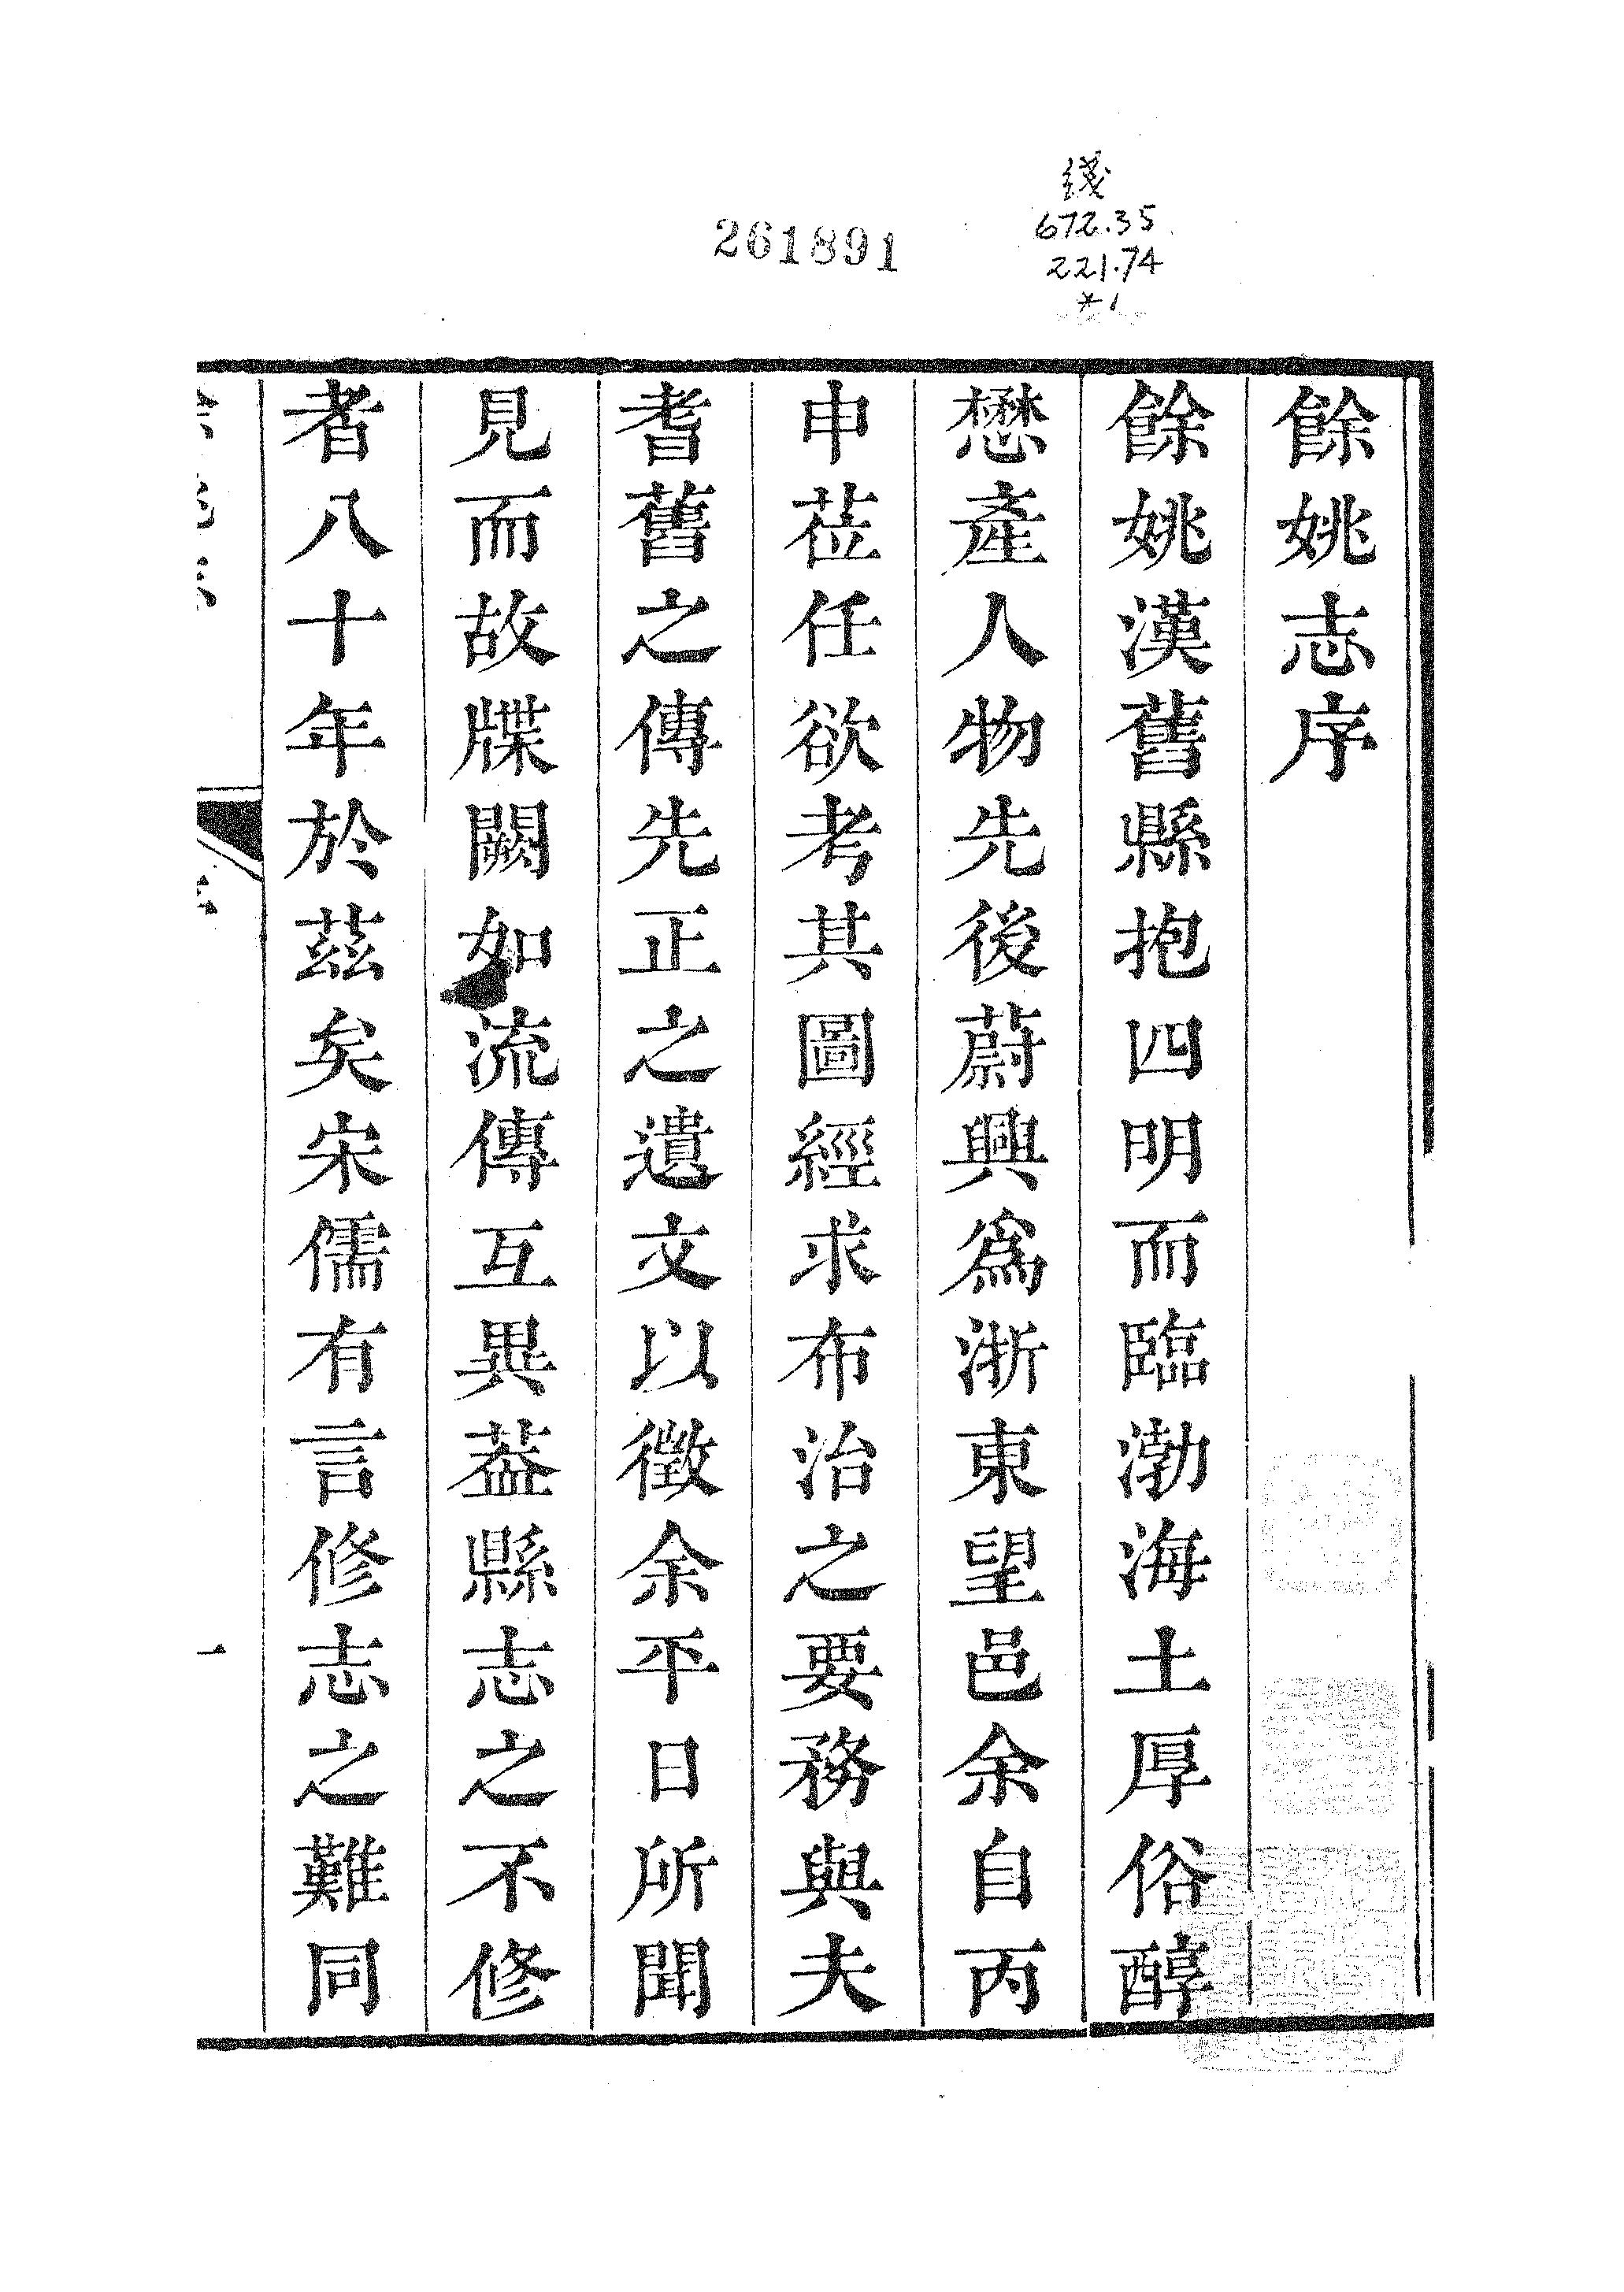 261891
錢
672.35
221.74
*1
餘姚志序
餘姚漢舊縣抱四明而臨渤海土厚俗醇
懋產人物先後蔚興爲浙東望邑余自丙
申莅任欲考其圖經求布治之要務與夫
耆舊之傳先正之遺文以徵余平日所聞
見而故牒闕如流傳互異葢縣志之不修
者八十年於茲矣宋儒有言修志之難同
一